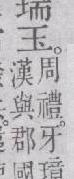 瑞玉。
周禮。牙璋
漢與郡國